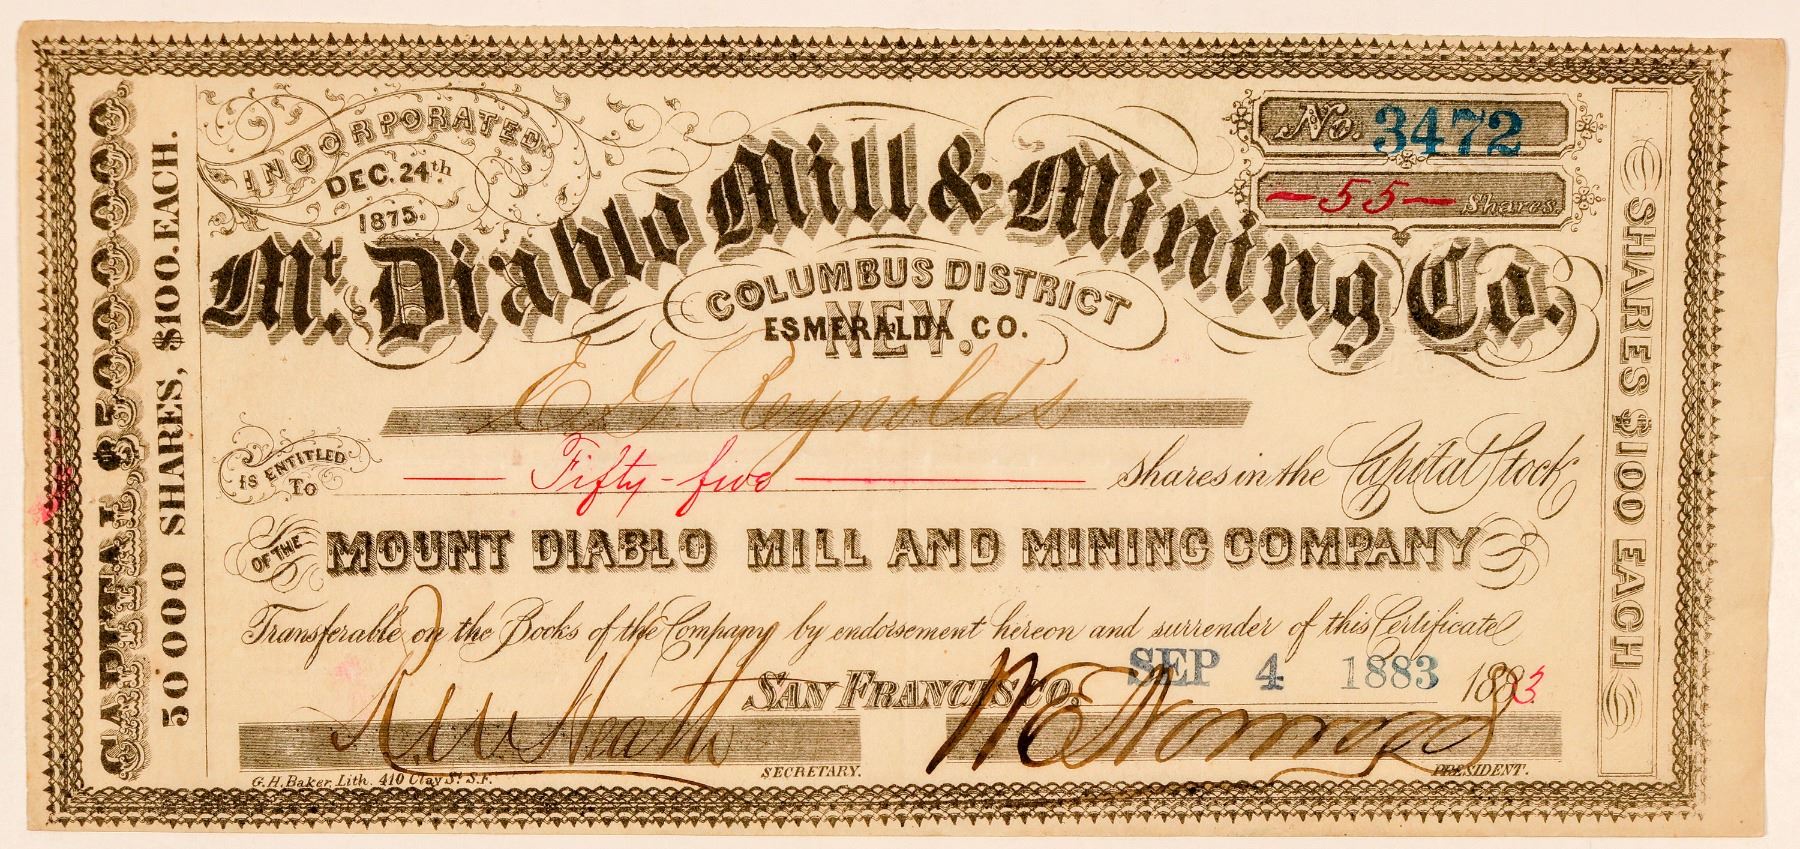 INCORPORATED
DEC. 24th
1875.
No. 3472
—55— Shares.
Mt. Diablo Mill & Mining Co.
COLUMBUS DISTRICT
ESMERALDA CO.
NEV.
E G Reynolds
IS ENTITLED
To
— Fifty-five — shares in the Capital Stock
OF THE
MOUNT DIABLO MILL AND MINING COMPANY
Transferable on the Books of the Company by endorsement hereon and surrender of this Certificate
SAN FRANCISCO. SEP 4 1883 1883.
R. W. Heath
SECRETARY.
PRESIDENT.
G.H. Baker, Lith. 410 Clay St. S.F.
CAPITAL $5000000
50000 SHARES, $100. EACH.
SHARES $100 EACH